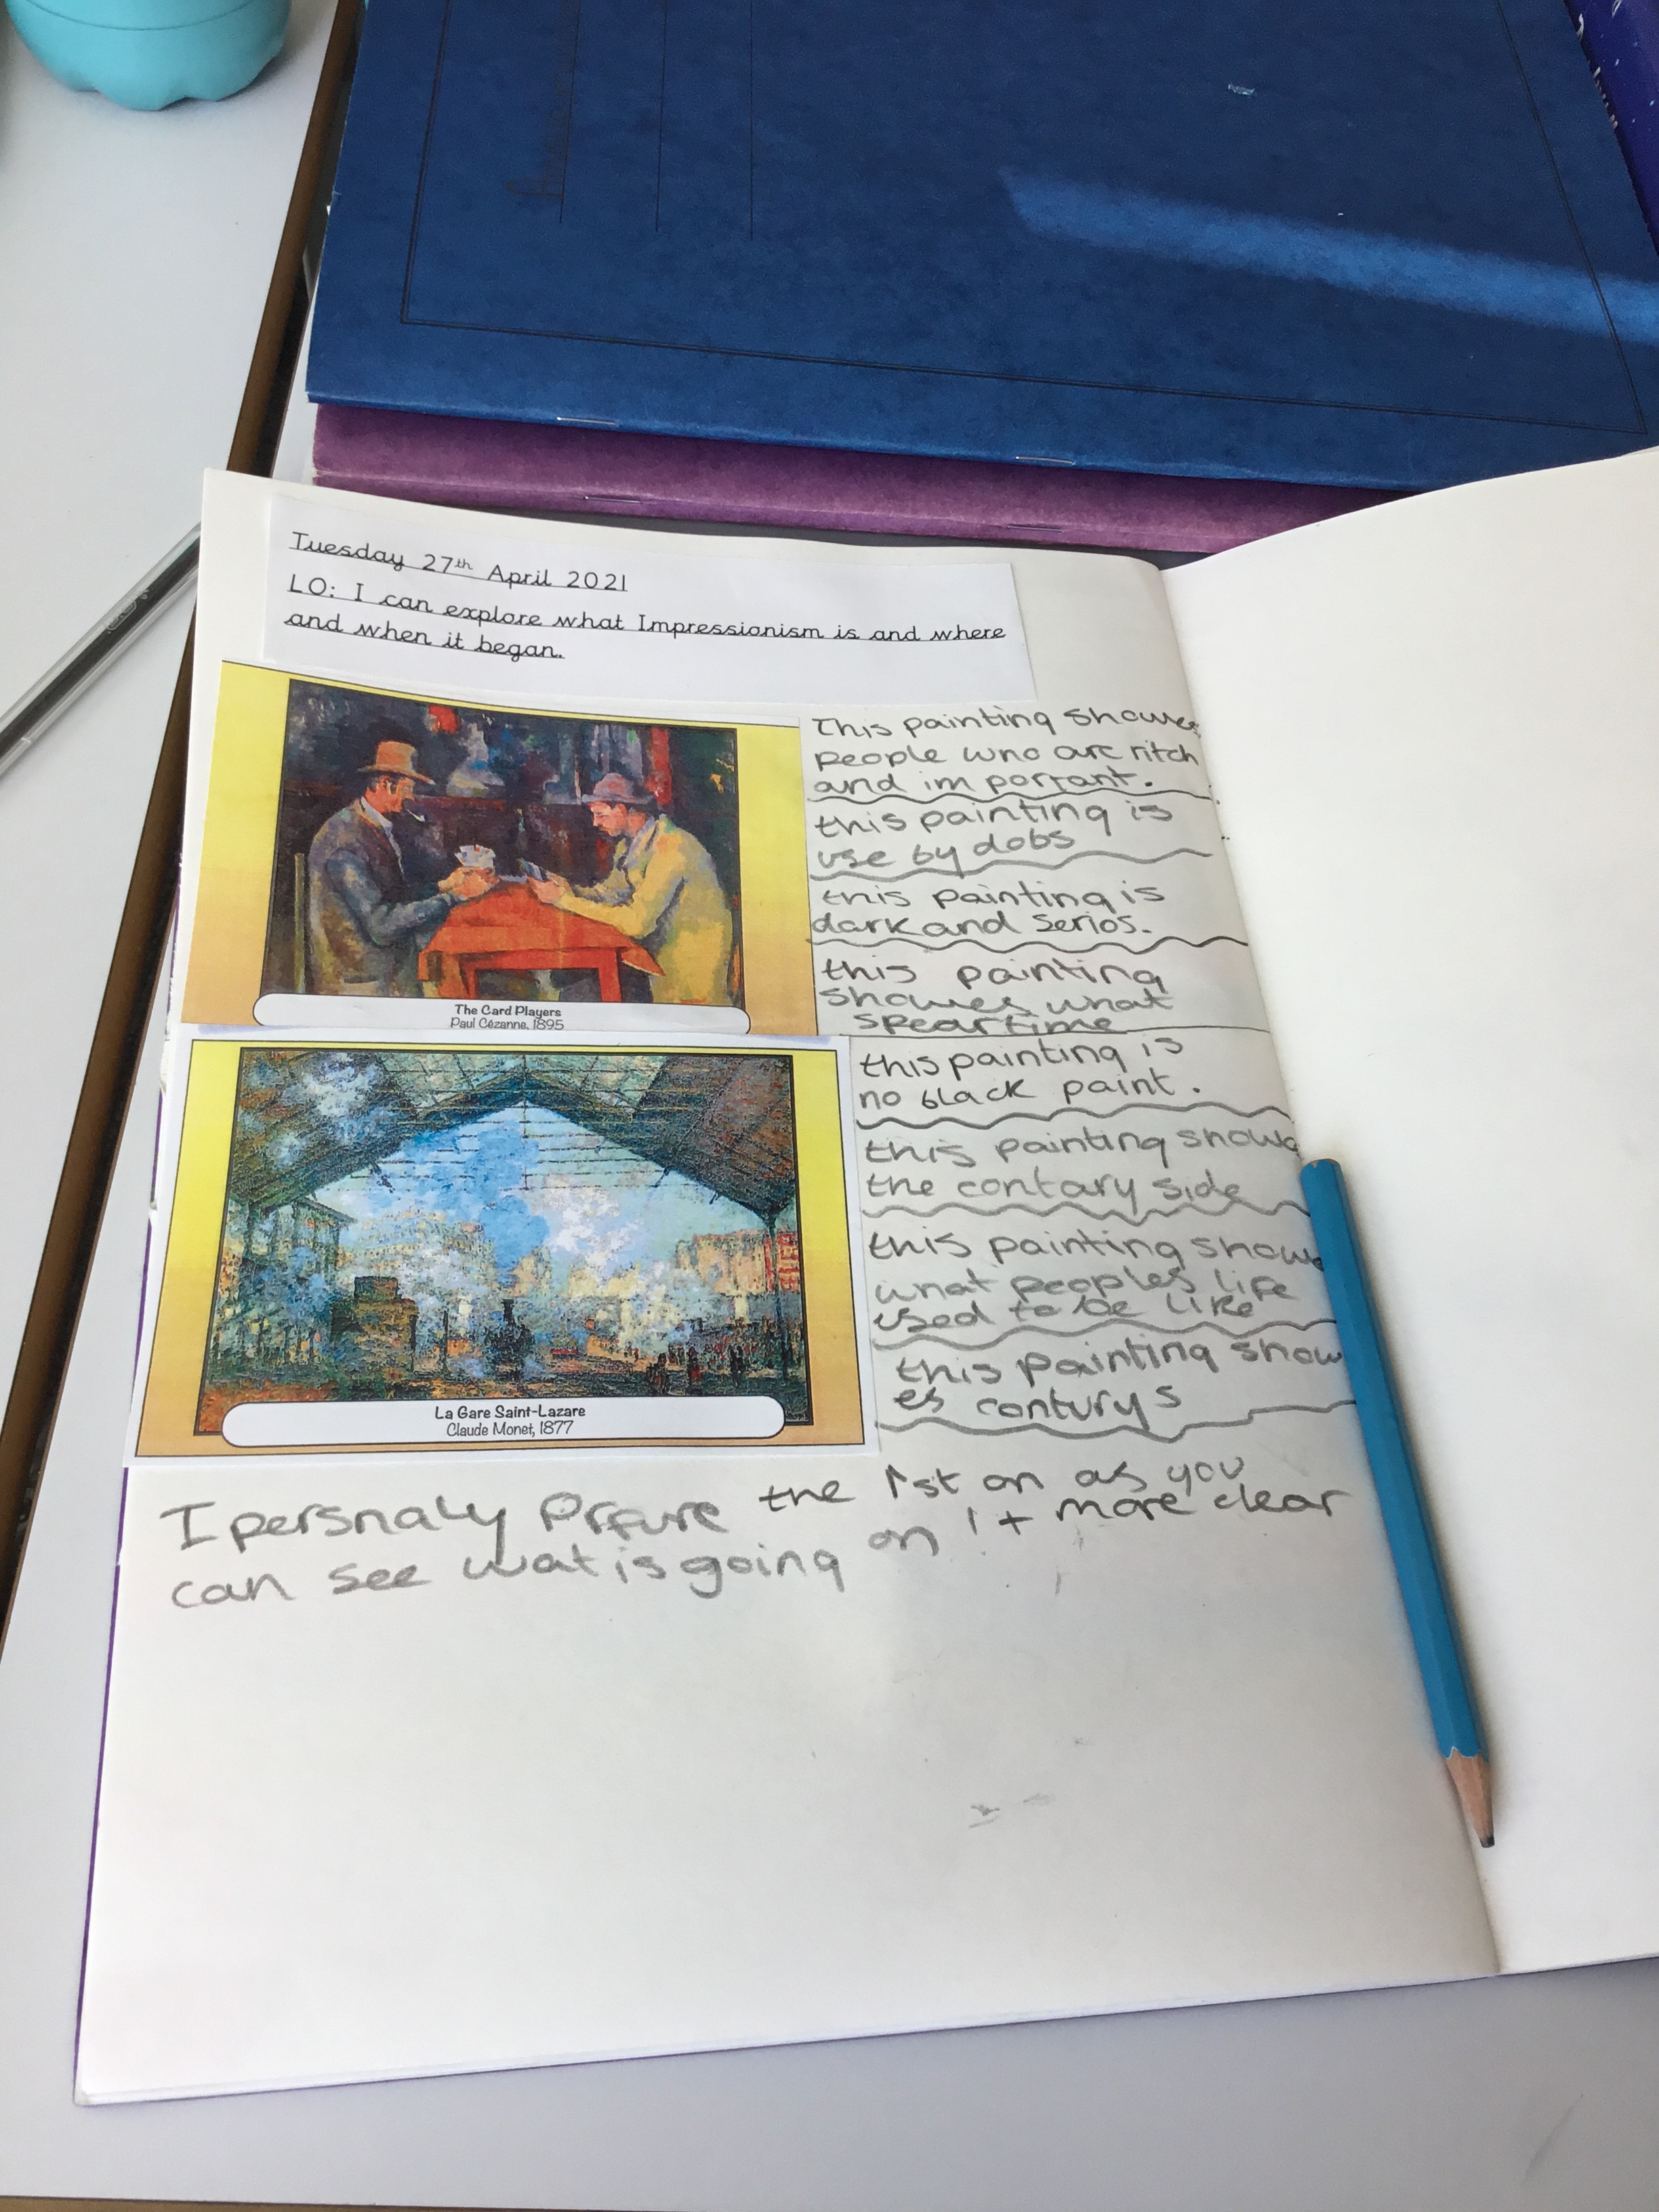 Tuesday 27th April 2021
LO: I can explore what Impressionism is and where
and when it began.
This painting showes
people who are ritch
and important.
this painting is
use by dobs
this painting is
dark and serios.
this painting
showes what
speartime
The Card Players
Paul Cézanne, 1895
this painting is
no black paint.
this painting show
the contary side
this painting show
what peoples life
used to be like
this painting show
es conturys
La Gare Saint-Lazare
Claude Monet, 1877
I persnaly Prfure the 1st on as you
can see wat is going on it more clear